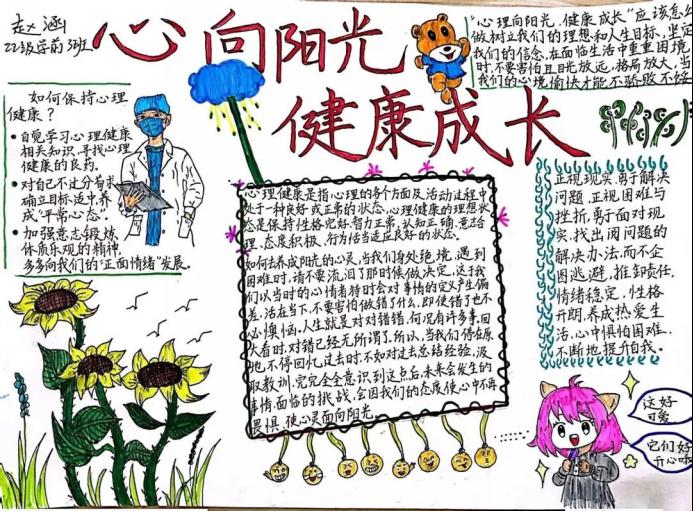 赵涵
22级学前3班
心向阳光
健康成长
"心理向阳光,健康成长"应该怎么
做树立我们的理想和人生目标,坚定
我们的信念,在面临生活中重重困境
时,不要害怕且目光放远,格局放大,当
我们的心境愉快才能不骄败不馁
如何保持心理
健康?
自觉学习心理健康
相关知识,寻找心理
健康的良药。
对自己不过分苛求
确立目标适中养
成"平常心态"。
加强意志锻炼,
体质乐观的精神,
多多向我们的"正面情绪"发展。
心理健康是指心理的各个方面及活动过程中
处于一种良好或正常的状态,心理健康的理想状
态是保持性格完好,智力正常,认知正确,意志合
理、态度积极、行为恰当适应良好的状态。
如何去养成阳光的心灵,当我们身处绝境,遇到
困难时,请不要流泪了那时候做决定,这于我
们以当时的心情看待时会对事情的定义产生偏
差。活在当下,不要害怕做错了什么,即使错了也不
必懊恼,人生就是对对错错,何况有许多事,回
头看时,对错已经无所谓了,所以,当我们停在原
地,不停回忆过去时不如对过去总结经验,汲
取教训,完完全全意识到这点后,未来会发生的
事情,面临的挑战,会因我们的态度使心中不再
畏惧,使心灵面向阳光。
正视现实,勇于解决
问题,正视困难与
挫折,勇于面对现
实,找出阅问题的
解决办法,而不企
图逃避,推卸责任,
情绪稳定,性格
开朗,养成热爱生
活,心中惧怕困难,
不断地提升自我。
这好
可爱
它们好
开心哦